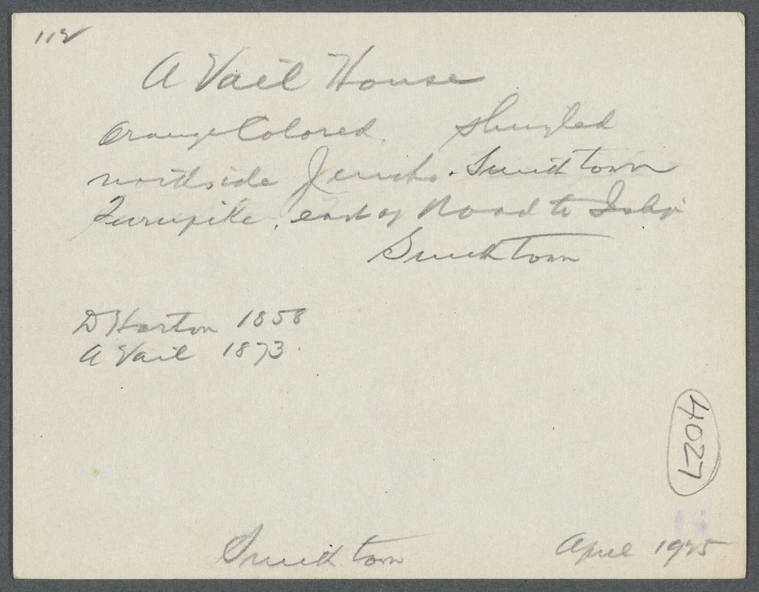 112
A Vail House
Orange Colored, Shingled
northside Jericho - Smithtown
Turnpike, east of Road to Islip
Smithtown
D Harton 1858
A Vail 1873
4027
Smithtown April 1925